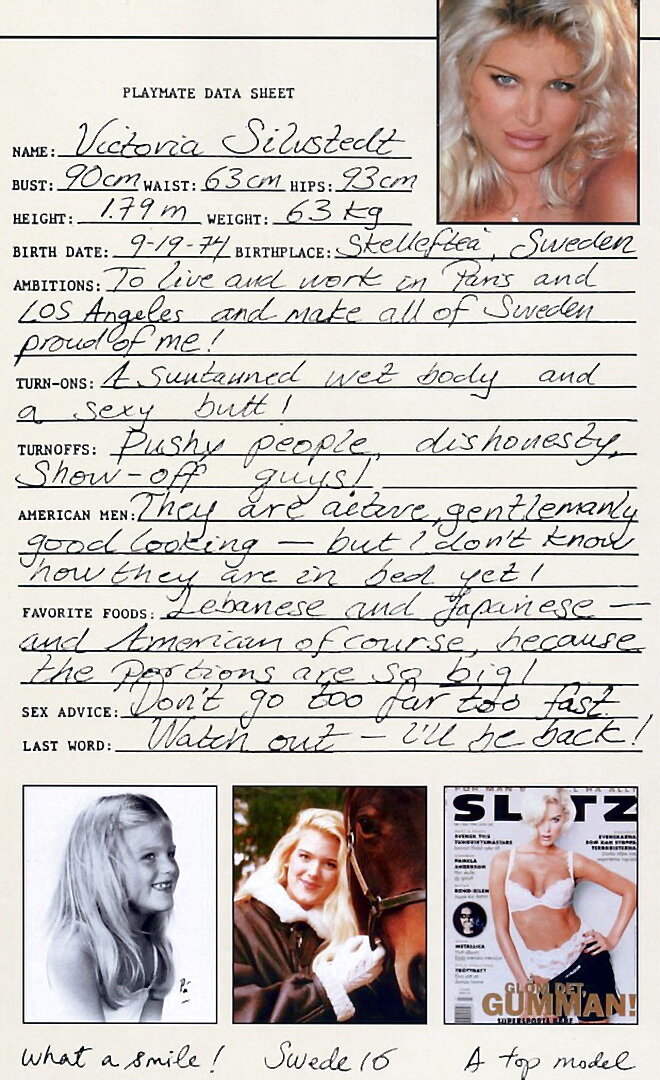 PLAYMATE DATA SHEET
NAME: Victoria Silvstedt
BUST: 90cm WAIST: 63cm HIPS: 93cm
HEIGHT: 1.79m WEIGHT: 63 kg
BIRTH DATE: 9-19-74 BIRTHPLACE: Skelleftea, Sweden
AMBITIONS: To live and work in Paris and
LOS Angeles and make all of Sweden
proud of me!
TURN-ONS: A suntanned wet body and
a sexy butt!
TURNOFFS: Pushy people, dishonesty,
Show-off guys!
AMERICAN MEN: They are active, gentlemanly
good looking – but I don't know
how they are in bed yet!
FAVORITE FOODS: Lebanese and Japanese –
and American of course, because
the portions are so big!
SEX ADVICE: Don't go too far too fast.
LAST WORD: Watch out – I'll be back!
SL TZ
PAMELA
ANDERSON
METALLICA
GLÖM DET,
GUMMAN!
what a smile!
Swede 16
A top model